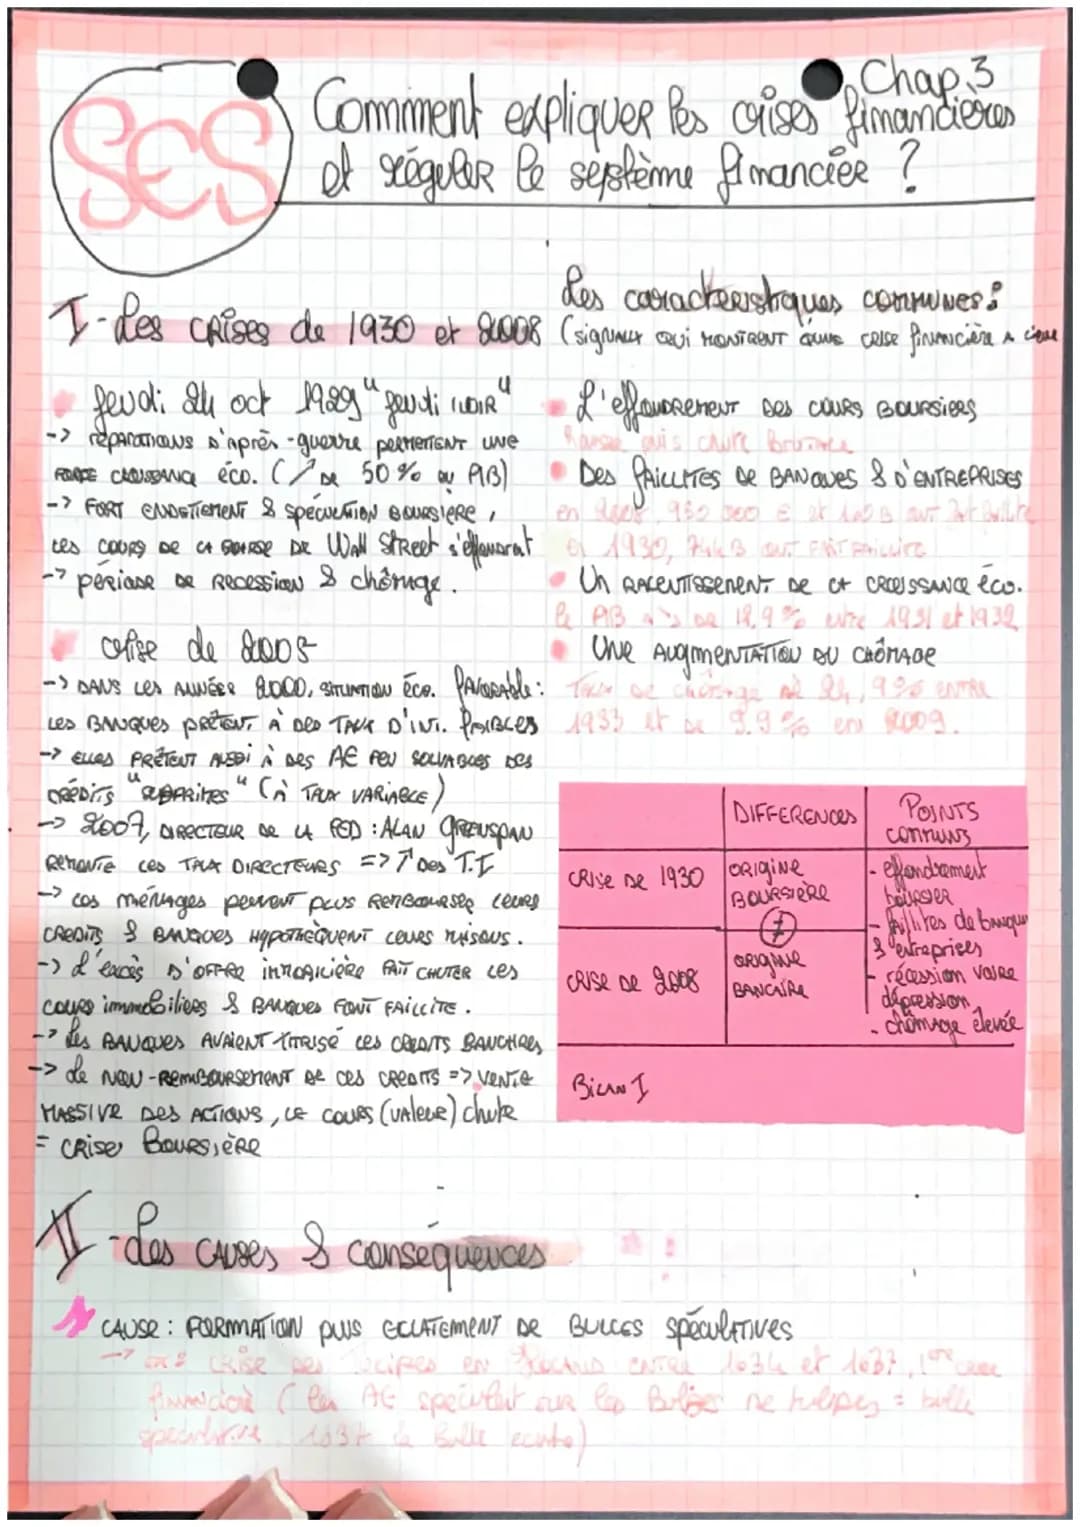 Chap.3
SES
Comment expliquer les crises financières
et réguler le système financier ?
I - Les CRISES de 1930 et 2008
jeudi 24 oct 1929 "jeudi NOIR"
-> réparations d'après-guerre permettent une
FORTE CROISSANCE éco. (↗ de 50% du PIB)
-> FORT ENDETTEMENT & SPÉCULATION BOURSIÈRE,
les cours de la Bourse de Wall Street s'effondrent
-> période de récession & chômage.
crise de 2008
-> DANS LES ANNÉES 2000, SITUATION éco. FAVORABLE :
LES BANQUES PRÊTENT À DES TAUX D'INT. FAIBLES
-> ELLES PRÊTENT AUSSI À DES AE PEU SOLVABLES DES
CRÉDITS "SUBPRIMES" (À TAUX VARIABLE)
-> 2007, DIRECTEUR DE LA FED : ALAN GREENSPAN
REMONTE LES TAUX DIRECTEURS => ↑ DES T.I
-> les ménages peuvent plus REMBOURSER LEURS
CREDITS & BANQUES HYPOTHÈQUENT LEURS MAISONS.
-> L'excès D'OFFRE IMMOBILIÈRE FAIT CHUTER LES
COURS immobiliers & BANQUES FONT FAILLITE.
-> Les BANQUES AVAIENT TITRISÉ LES CREDITS BANCAIRES
-> Le NON-REMBOURSEMENT DE CES CREDITS => VENTE
MASSIVE DES ACTIONS, LE COURS (VALEUR) chute
= CRISE BOURSIÈRE
Les caractéristiques communes :
(signaux qui MONTRENT qu'une crise financière a lieu
L'effondrement DES COURS BOURSIERS
Hausse puis chute Brutale
Des FAILLITES DE BANQUES & D'ENTREPRISES
en 2008,
1930, ONT FAIT FAILLITE
Un RALENTISSEMENT DE LA CROISSANCE éco.
le PIB entre 1931 et 1932
Une AUGMENTATION DU CHÔMAGE
Taux de chômage de 24,9% ENTRE
1933 et de 9.9% en 2009.
DIFFERENCES
POINTS
communs
CRISE DE 1930
ORIGINE
BOURSIÈRE
≠
CRISE DE 2008
ORIGINE
BANCAIRE
- effondrement
boursier
- faillites de banques
& entreprises
- récession voire
dépression
- chômage élevée
BILAN I
II - Les CAUSES & conséquences
CAUSE : FORMATION puis ECLATEMENT DE BULLES SPÉCULATIVES
-> ex : CRISE DES Tulipes en ENTRE 1634 et 1637, 1ère crise
financière (les AE spéculent sur les Bulbes de tulipes = bulle
spéculative, 1637 la Bulle éclate)